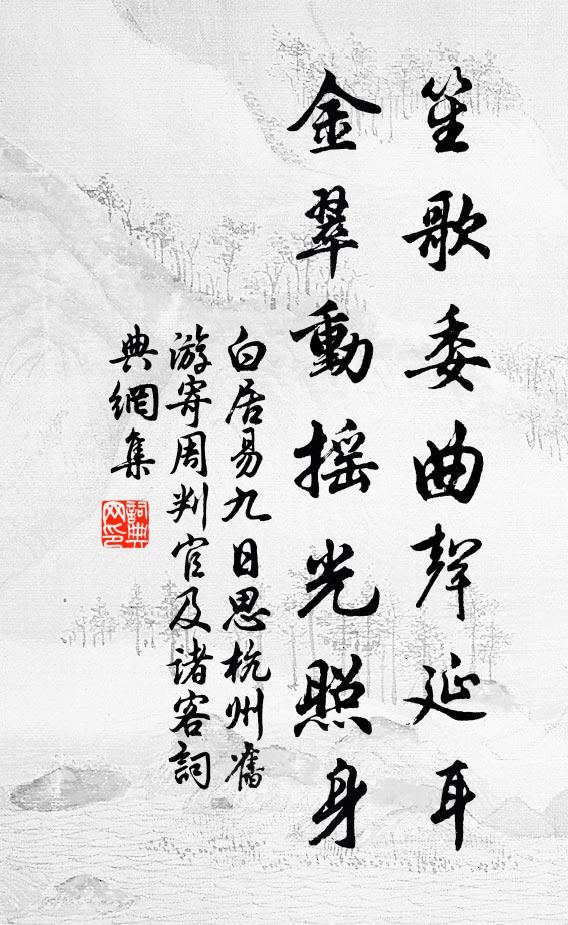 笙歌委曲聲延耳
金翠動摇光照身
白居易九日思杭州舊
游寄周判官及诸客詞
典網集
詞典
网印